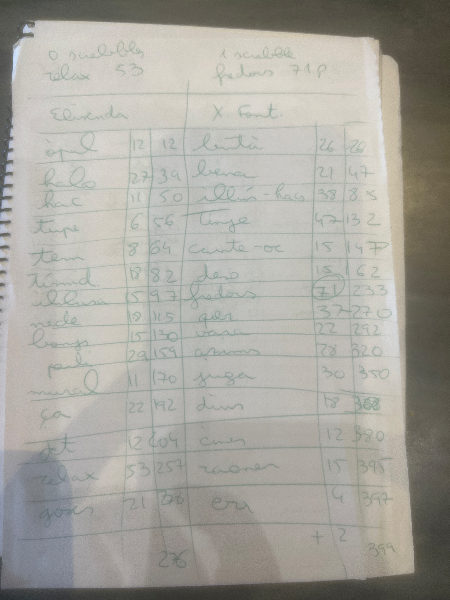 0 scrabbles 1 scrabble
relax 53 fredors 71 p
X Font.
àpil 12 12 lentà 26 26
halo 27 39 bena 21 47
hac 11 50 illús-hacs 38 85
tupe 6 56 tinge 47 132
tem 8 64 cante-oc 15 147
18 82 15 162
il·lusa 15 97 fredors 71 233
nede 18 115 37 270
banys 15 130 vasa 22 292
29 159 28 320
mural 11 170 juga 30 350
ça 22 192 dius 18 368
get 12 204 cines 12 380
relax 53 257 raones 15 395
goses 21 278 era 4 397
+ 2
276 399